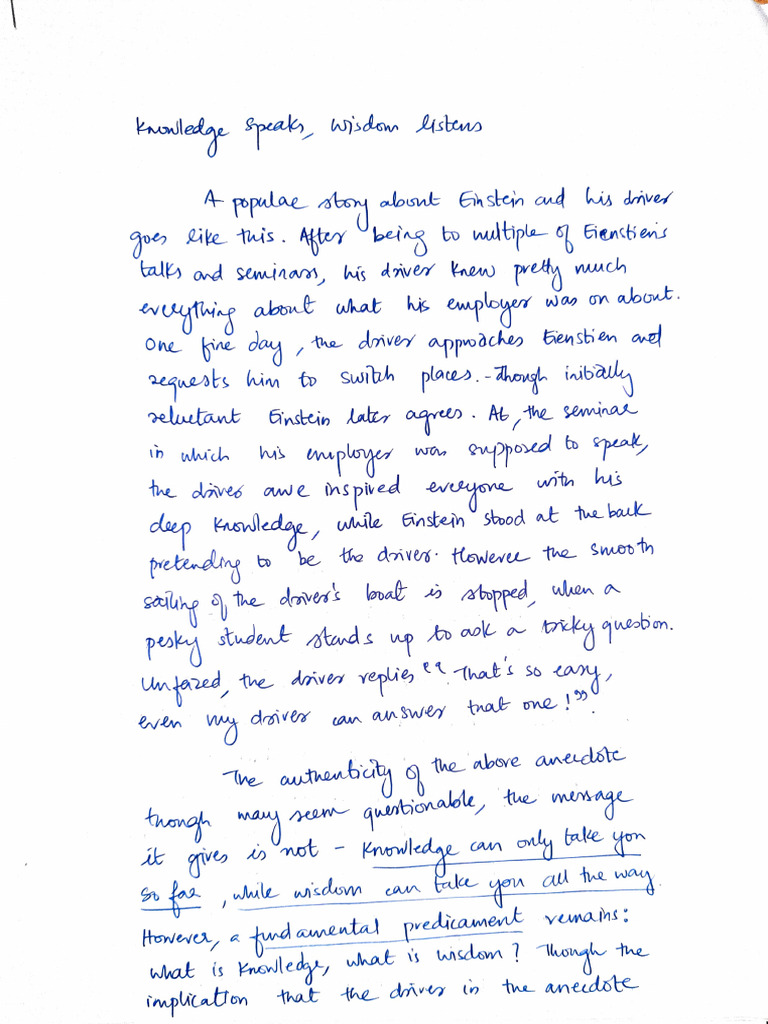 Knowledge speaks, wisdom listens
A popular story about Einstein and his driver
goes like this. After being to multiple of Eienstien's
talks and seminars, his driver knew pretty much
everything about what his employer was on about.
One fine day, the driver approaches Eienstien and
requests him to switch places. Though initially
reluctant Einstein later agrees. At, the seminar
in which his employer was supposed to speak,
the driver awe inspired everyone with his
deep knowledge, while Einstein stood at the back
pretending to be the driver. However the smooth
sailing of the driver's boat is stopped, when a
pesky student stands up to ask a tricky question.
Unfazed, the driver replies "That's so easy,
even my driver can answer that one!".
The authenticity of the above anecdote
though may seem questionable, the message
it gives is not - Knowledge can only take you
so far, while wisdom can take you all the way.
However, a fundamental predicament remains:
what is knowledge, what is wisdom? Though the
implication that the driver in the anecdote